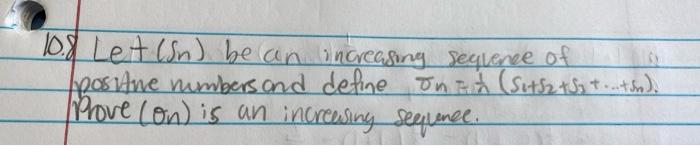 10.8 Let (Sn) be an increasing sequence of
positive numbers and define σn = 1/n (S1+S2+S3+...+Sn).
Prove (σn) is an increasing sequence.